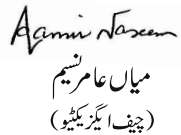 Aamir Naseem
میاں عامر نسیم
(چیف ایگزیکٹیو)